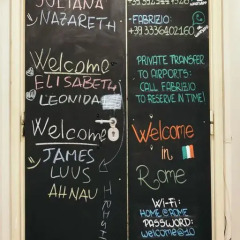 JULIANA
NAZARETH
Welcome
ELISABETH
LEONIDA
Welcome
JAMES
LUUS
AHNAU
- FABRIZIO:
+39 3336402160
PRIVATE TRANSFER
TO AIRPORTS:
CALL FABRIZIO
TO RESERVE IN TIME!
Welcome
in
Rome
Wi-Fi:
HOME@ROME
PASSWORD:
welcome@10